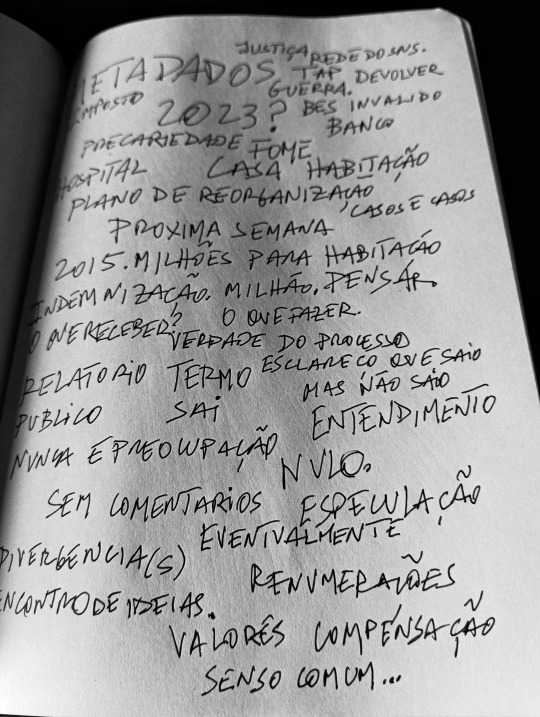 JUSTIÇA REDE DO SNS.
METADADOS. TAP DEVOLVER
IMPOSTO GUERRA.
2023? BES INVALIDO
BANCO
PRECARIEDADE FOME
HOSPITAL CASA HABITAÇÃO
PLANO DE REORGANIZAÇÃO
CASOS E CASOS
PROXIMA SEMANA
2015. MILHÕES PARA HABITAÇÃO
INDEMNIZAÇÃO. MILHÃO. PENSAR.
O QUE RECEBER? O QUE FAZER.
VERDADE DO PROCESSO
RELATORIO TERMO ESCLAREÇO QUE SAIO
MAS NÃO SAIO
PUBLICO SAI ENTENDIMENTO
NUNCA E PREOCUPAÇÃO
NULO.
SEM COMENTARIOS ESPECULAÇÃO
EVENTUALMENTE
DIVERGÊNCIA(S)
RENUMERAÇÕES
ENCONTRO DE IDEIAS.
VALORES COMPENSAÇÃO
SENSO COMUM...